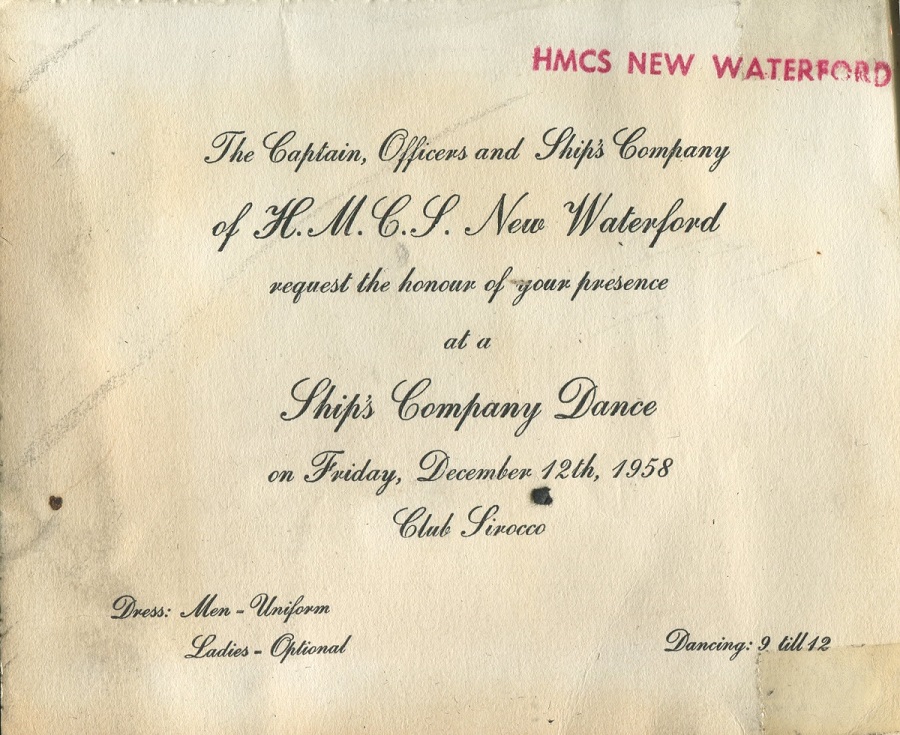 HMCS NEW WATERFORD
The Captain, Officers and Ship's Company
of H.M.C.S. New Waterford
request the honour of your presence
at a
Ship's Company Dance
on Friday, December 12th, 1958
Club Sirocco
Dress: Men - Uniform
Ladies - Optional
Dancing: 9 till 12